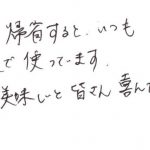 帰省すると、いつも
で使っています。
美味しいと皆さん喜んで